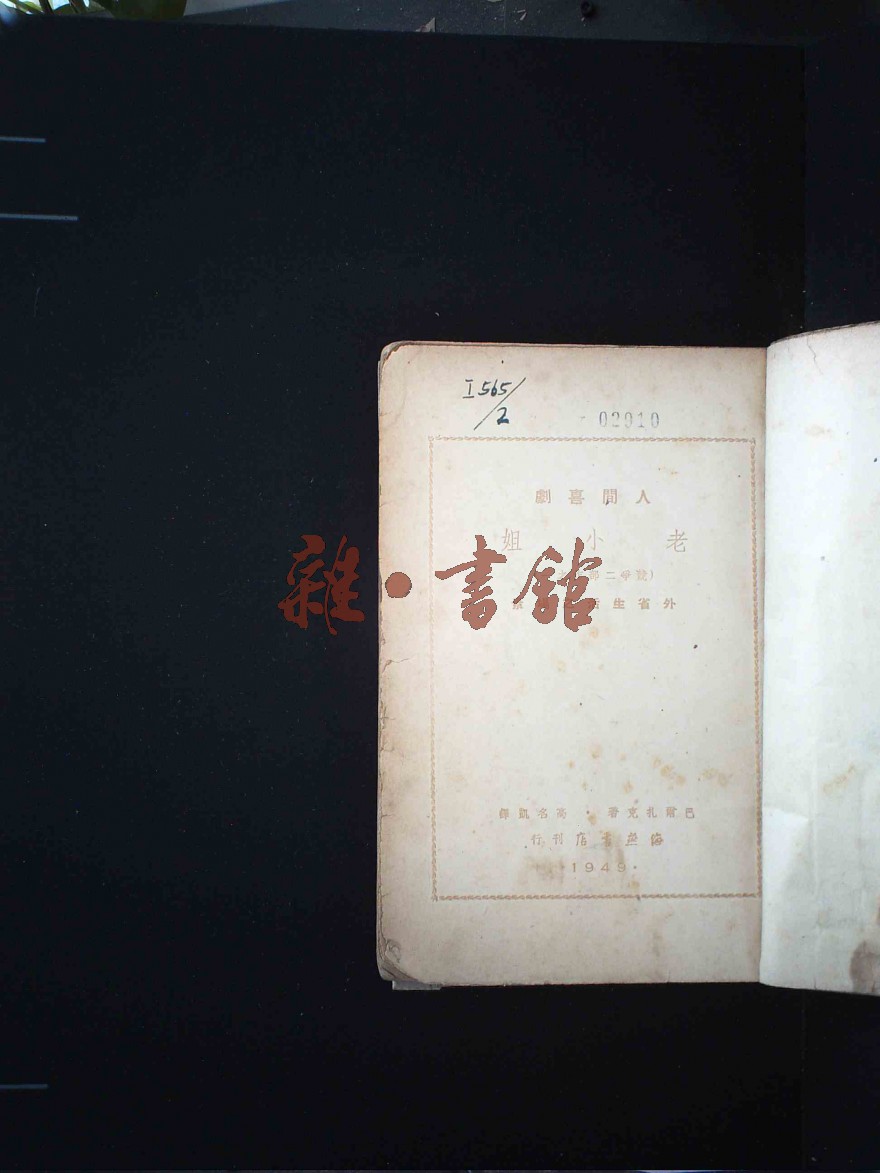 I565/2
02910
人間喜劇
老小姐
外省生活
雜·書館
巴爾扎克著·高名凱譯
海燕書店刊行
·1949·